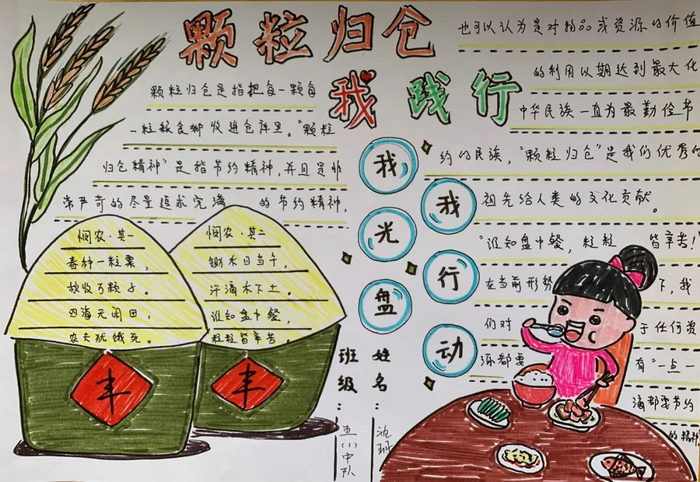 颗粒归仓
我践行
颗粒归仓是指把每一颗每
一粒粮食都收进仓库里。"颗粒
归仓精神"是指节约精神，并且是非
常严苛的尽量追求完满 的节约精神，
也可以认为是对物品或资源的价值
的利用以期达到最大化
中华民族一直为最勤俭节
约的民族，"颗粒归仓"是我们优秀的
祖先给人类的文化贡献。
"谁知盘中餐，粒粒 皆辛苦！"
在当前形势 下，我
们对 于任何资
源都要 有"一点一
滴都要节约
的精神
我光盘
我行动
悯农·其一
春种一粒粟，
秋收万颗子。
四海无闲田，
农夫犹饿死。
悯农·其二
锄禾日当午，
汗滴禾下土。
谁知盘中餐，
粒粒皆辛苦。
丰
丰
班级：五（1）中队
姓名：